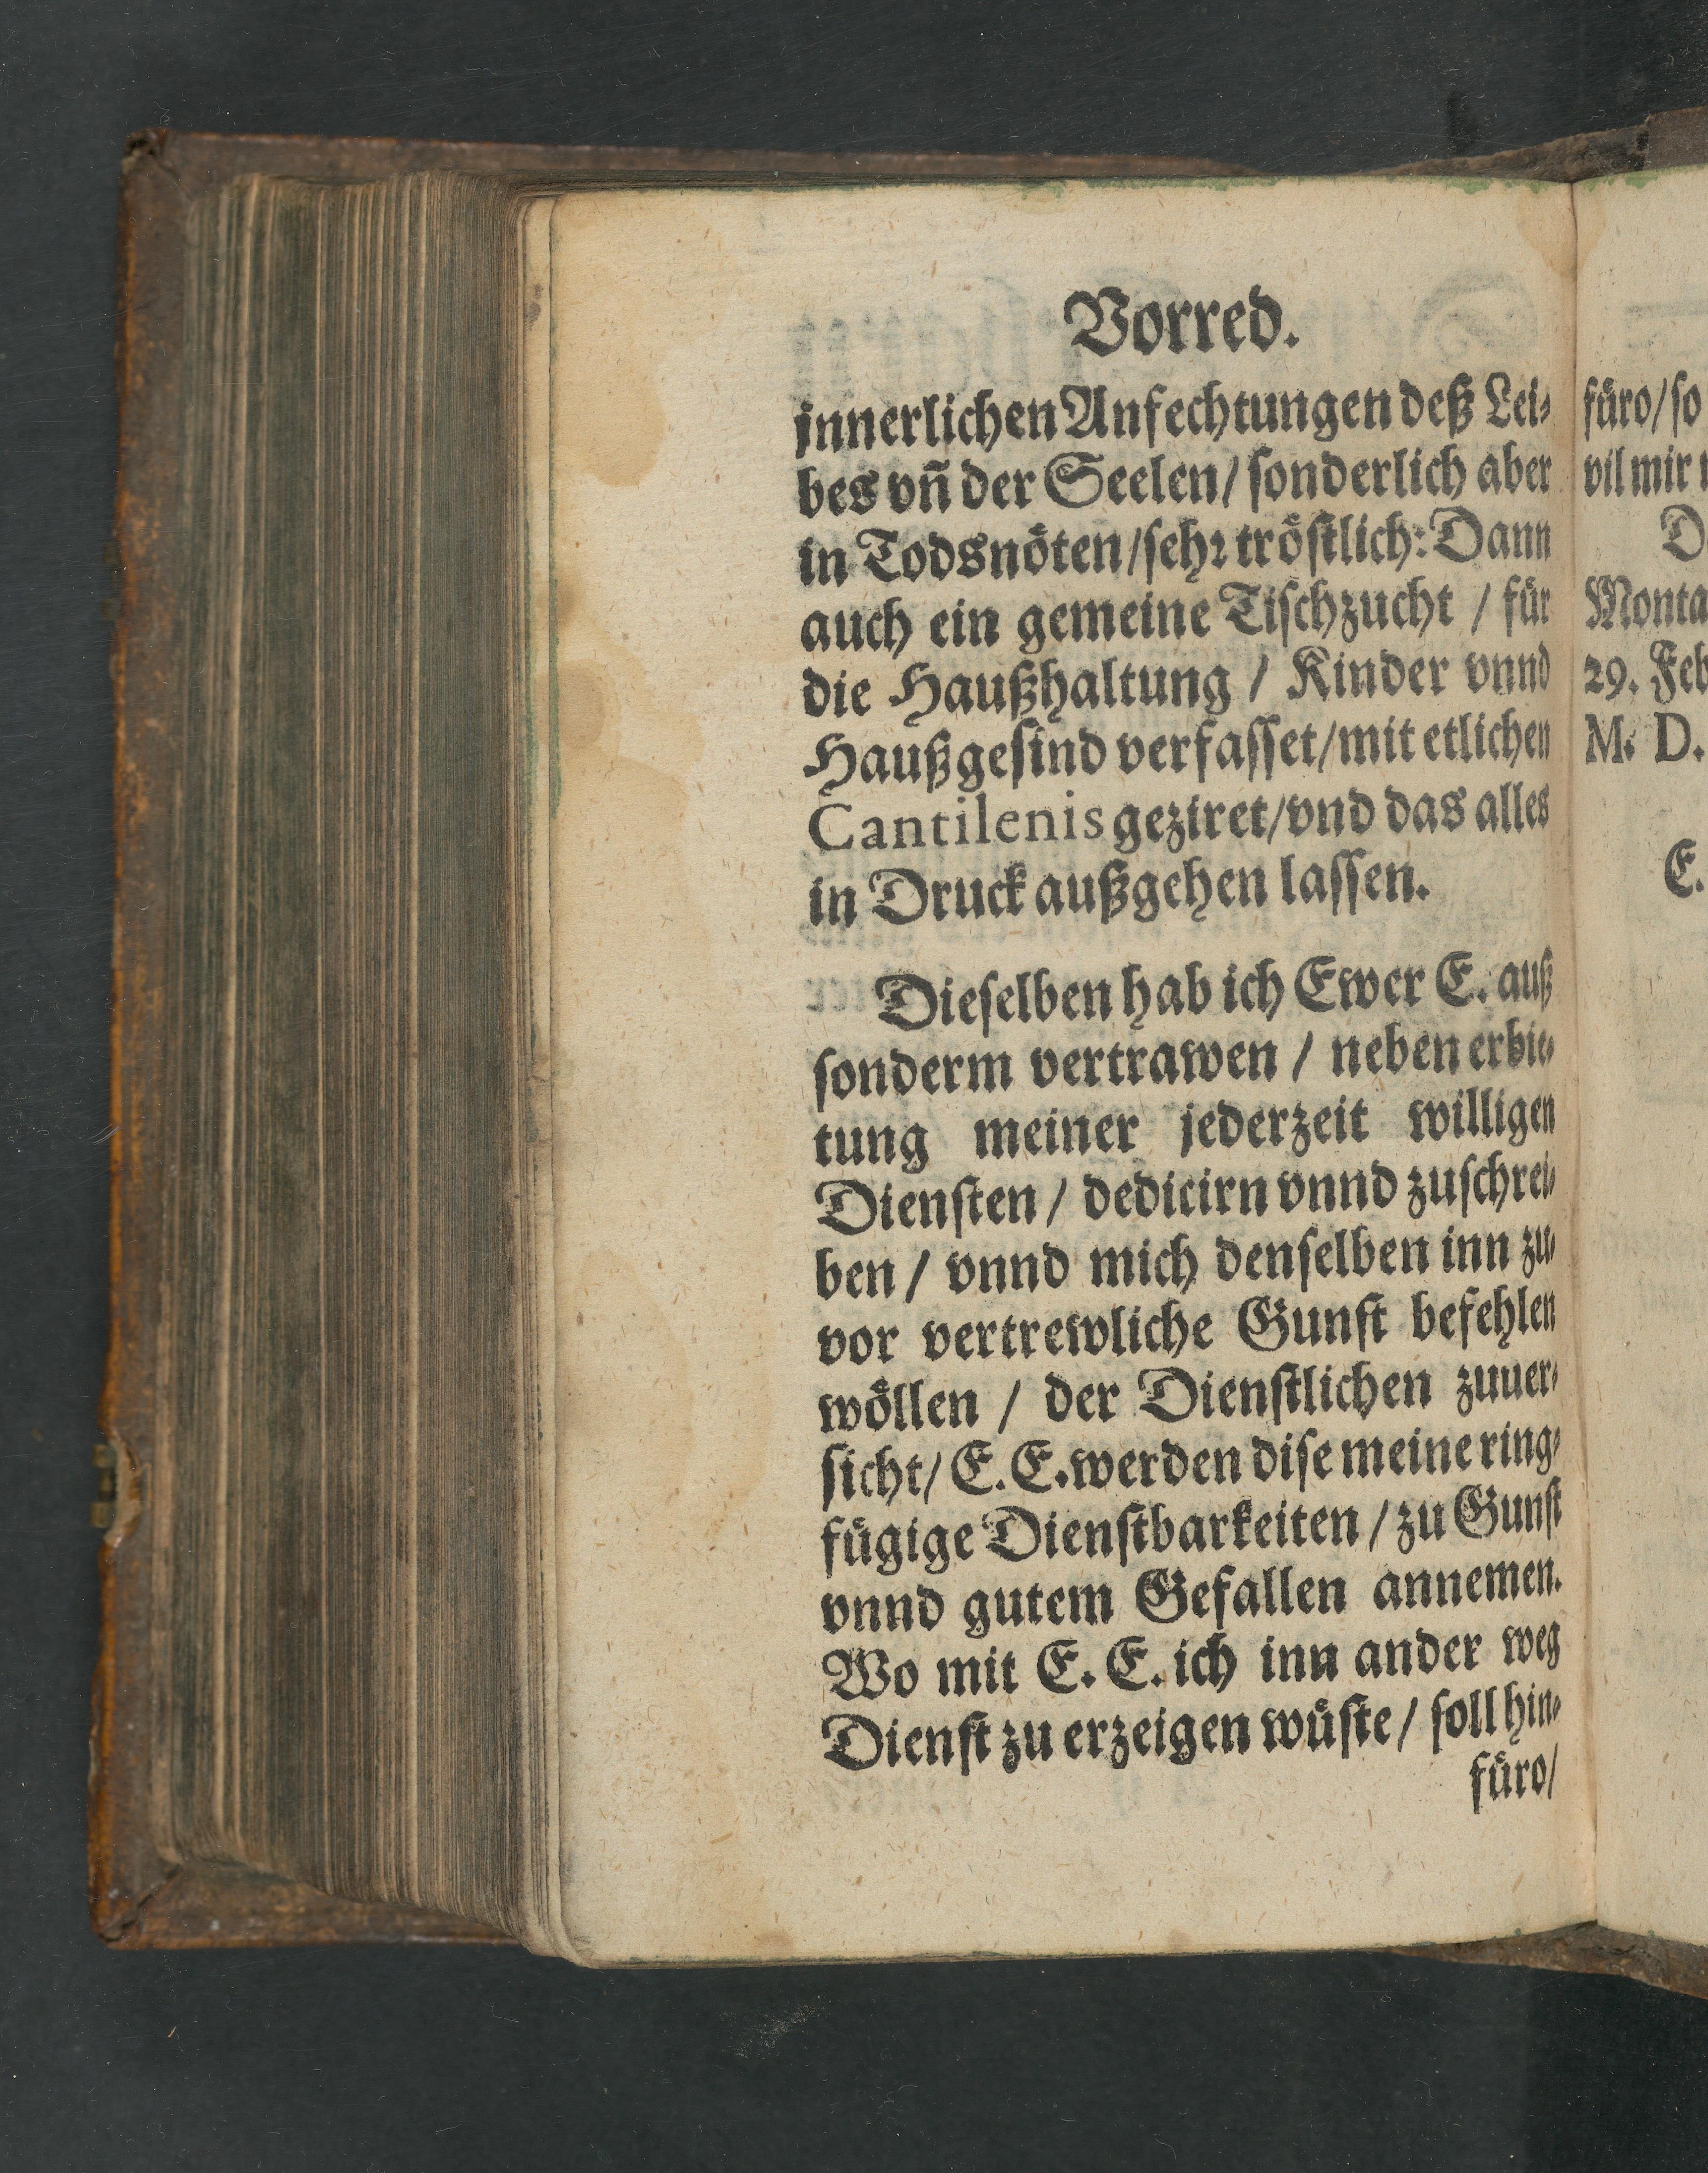 Vorred.
innerlichen Anfechtungen deß Lei⸗
bes vñ der Seelen/ ſonderlich aber
in Todsnoͤten/ ſehꝛ troͤſtlich: Dann
auch ein gemeine Tiſchzucht / fuͤr
die Haußhaltung / Kinder vnnd
Haußgeſind verfaſſet/ mit etlichen
Cantilenis geziret/ vnd das alles
in Druck außgehen laſſen.
Dieſelben hab ich Ewer E. auß
ſonderm vertrawen / neben erbie⸗
tung meiner jederzeit willigen
Dienſten / dedicirn vnnd zuſchrei⸗
ben / vnnd mich denſelben inn zu⸗
vor vertrewliche Gunſt befehlen
woͤllen / der Dienſtlichen zuuer⸗
ſicht/ E. E. werden diſe meine ring⸗
fuͤgige Dienſtbarkeiten / zu Gunſt
vnnd gutem Gefallen annemen.
Wo mit E. E. ich inn ander weg
Dienſt zu erzeigen wuͤſte / ſoll hin⸗
fuͤro/
fuͤro/ ſo
vil mir
D
Monta
29. Feb
M. D.
E.